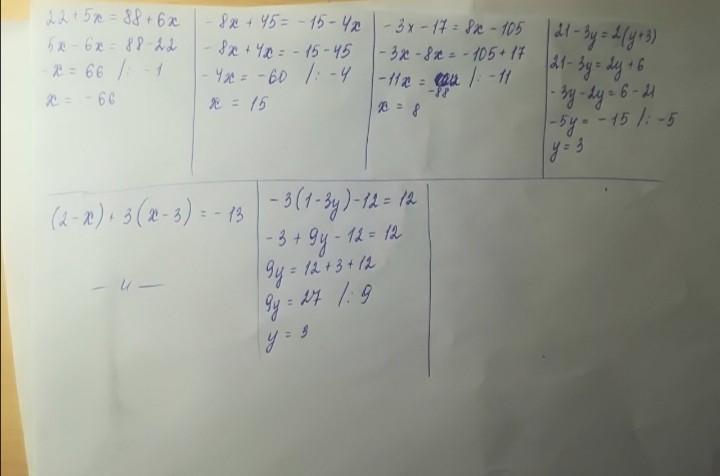 22+5x=88+6x
5x-6x=88-22
-x=66 /: -1
x=-66
-8x+45=-15-4x
-8x+4x=-15-45
-4x=-60 /: -4
x=15
-3x-17=8x-105
-3x-8x=-105+17
-11x= -88 /: -11
x=8
21-3y=2(y+3)
21-3y=2y+6
-3y-2y=6-21
-5y=-15 /: -5
y=3
(2-x)+3(x-3)=-13
-3(1-3y)-12=12
-3+9y-12=12
9y=12+3+12
9y=27 /: 9
y=3